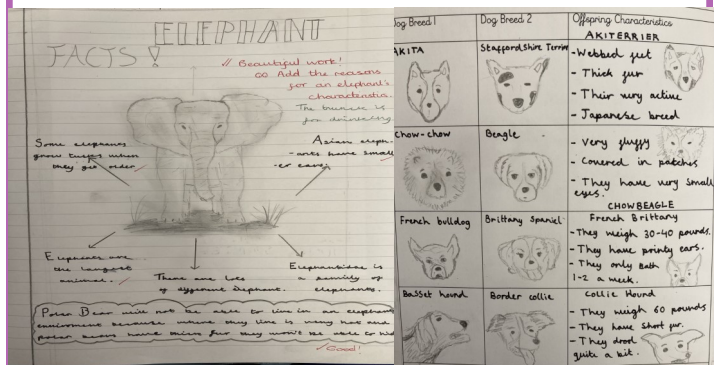 ELEPHANT
FACTS!
// Beautiful work!
Add the reasons
for an elephant's
characteristic.
is
for drinking
Some elephants
grow tusks when
they get older.
Asian eleph-
-ants have small-
-er ears.
Elephants are
the largest
animal.
There are lots
of different elephant.
Elephantidae is
a family of
elephants.
Polar Bear will not be able to live in an elephant
enviroment because where they live is very hot and
polar bears have thick fur they won't be able to
✓Good!
Dog Breed 1
Dog Breed 2
Offspring Characteristics
AKITERRIER
AKITA
Staffordshire Terrier
- Webbed feet
- Thick fur
- Their very active
- Japanese breed
Chow-chow
Beagle
- Very fluffy
- Covered in patches
- They have very small
eyes.
CHOWBEAGLE
French bulldog
Brittany Spaniel
French Brittany
- They weigh 30-40 pounds.
- They have pointy ears.
- They only Bath
1-2 a week.
Basset hound
Border collie
Collie Hound
- They weigh 60 pounds
- They have short fur.
- They drool
quite a bit.